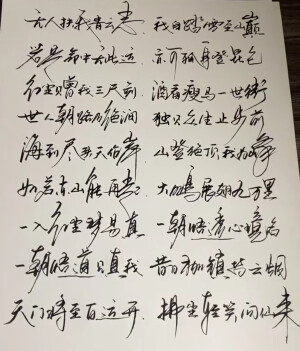 无人扶我青云志 我自踏雪至山巅
若是命中无此运 亦可孤身登昆仑
红尘赠我三尺剑 酒香瘦马一世街
世人朝路 独我 止步前
海到尽头天作岸 山登绝顶我为峰
如若东山能再起 大鹏展翅九万里
一入红尘梦易真 一朝悟透心境名
一朝悟道只真我 昔日枷锁皆云烟
天门将至百运开 拂尘轻笑问仙来